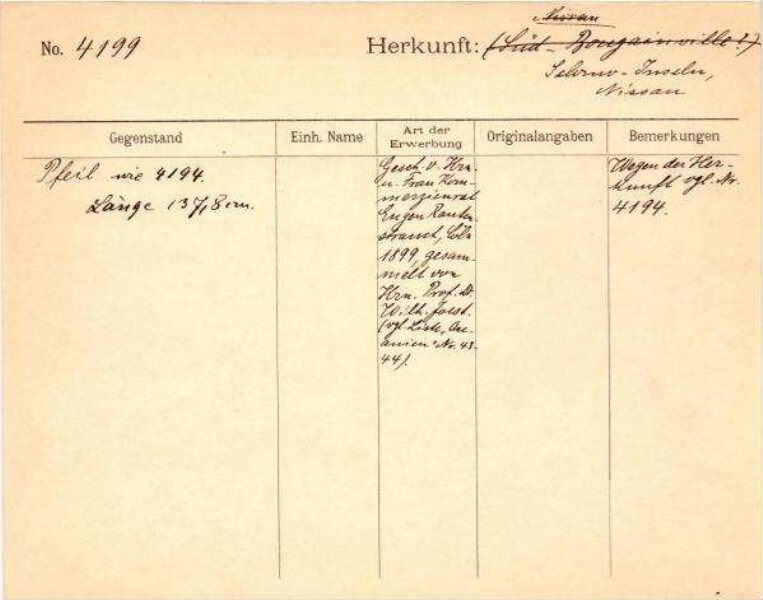 Nissan
No. 4199 Herkunft: (Süd-Bougainville?)
Salomo-Inseln,
Nissan
Gegenstand Einh. Name Art der Erwerbung Originalangaben Bemerkungen
Pfeil wie 4194.
Länge 137,8 cm.
Gesch. v. Hrn.
u. Frau Kom-
merzienrat
Eugen Rauten-
strauch, Cöln
1899, gesam-
melt von
Hrn. Prof. Dr.
Wilh. Joest.
(vgl. Liste, Oce-
anien" Nr. 43-
44).
Wegen der Her-
kunft vgl. Nr.
4194.